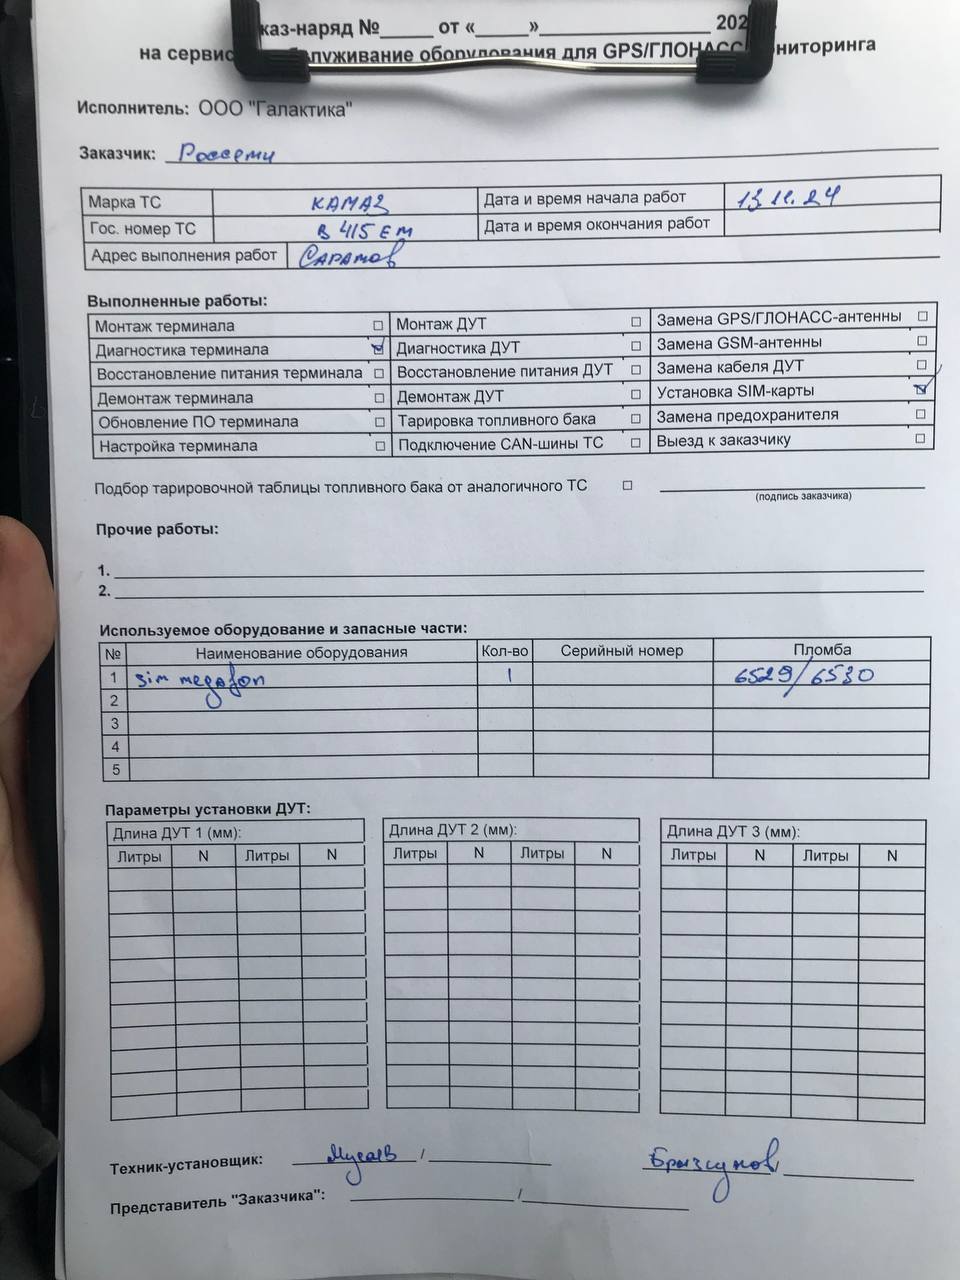 каз-наряд №_____ от «_____»________________ 202
на сервис луживание оборудования для GPS/ГЛОНАСС ниторинга
Исполнитель: ООО "Галактика"
Заказчик: Россети
Марка ТС КАМАЗ Дата и время начала работ 13.11.24
Гос. номер ТС В 415 ЕМ Дата и время окончания работ
Адрес выполнения работ Саратов
Выполненные работы:
Монтаж терминала ☐ Монтаж ДУТ ☐ Замена GPS/ГЛОНАСС-антенны ☐
Диагностика терминала ☑ Диагностика ДУТ ☐ Замена GSM-антенны ☐
Восстановление питания терминала ☐ Восстановление питания ДУТ ☐ Замена кабеля ДУТ ☐
Демонтаж терминала ☐ Демонтаж ДУТ ☐ Установка SIM-карты ☑
Обновление ПО терминала ☐ Тарировка топливного бака ☐ Замена предохранителя ☐
Настройка терминала ☐ Подключение CAN-шины ТС ☐ Выезд к заказчику ☐
Подбор тарировочной таблицы топливного бака от аналогичного ТС ☐
(подпись заказчика)
Прочие работы:
1.
2.
Используемое оборудование и запасные части:
№ Наименование оборудования Кол-во Серийный номер Пломба
1 sim megafon 1 6529/6530
2
3
4
5
Параметры установки ДУТ:
Длина ДУТ 1 (мм): Длина ДУТ 2 (мм): Длина ДУТ 3 (мм):
Литры N Литры N Литры N Литры N Литры N Литры N
Техник-установщик: Мусаев /
Представитель "Заказчика": /